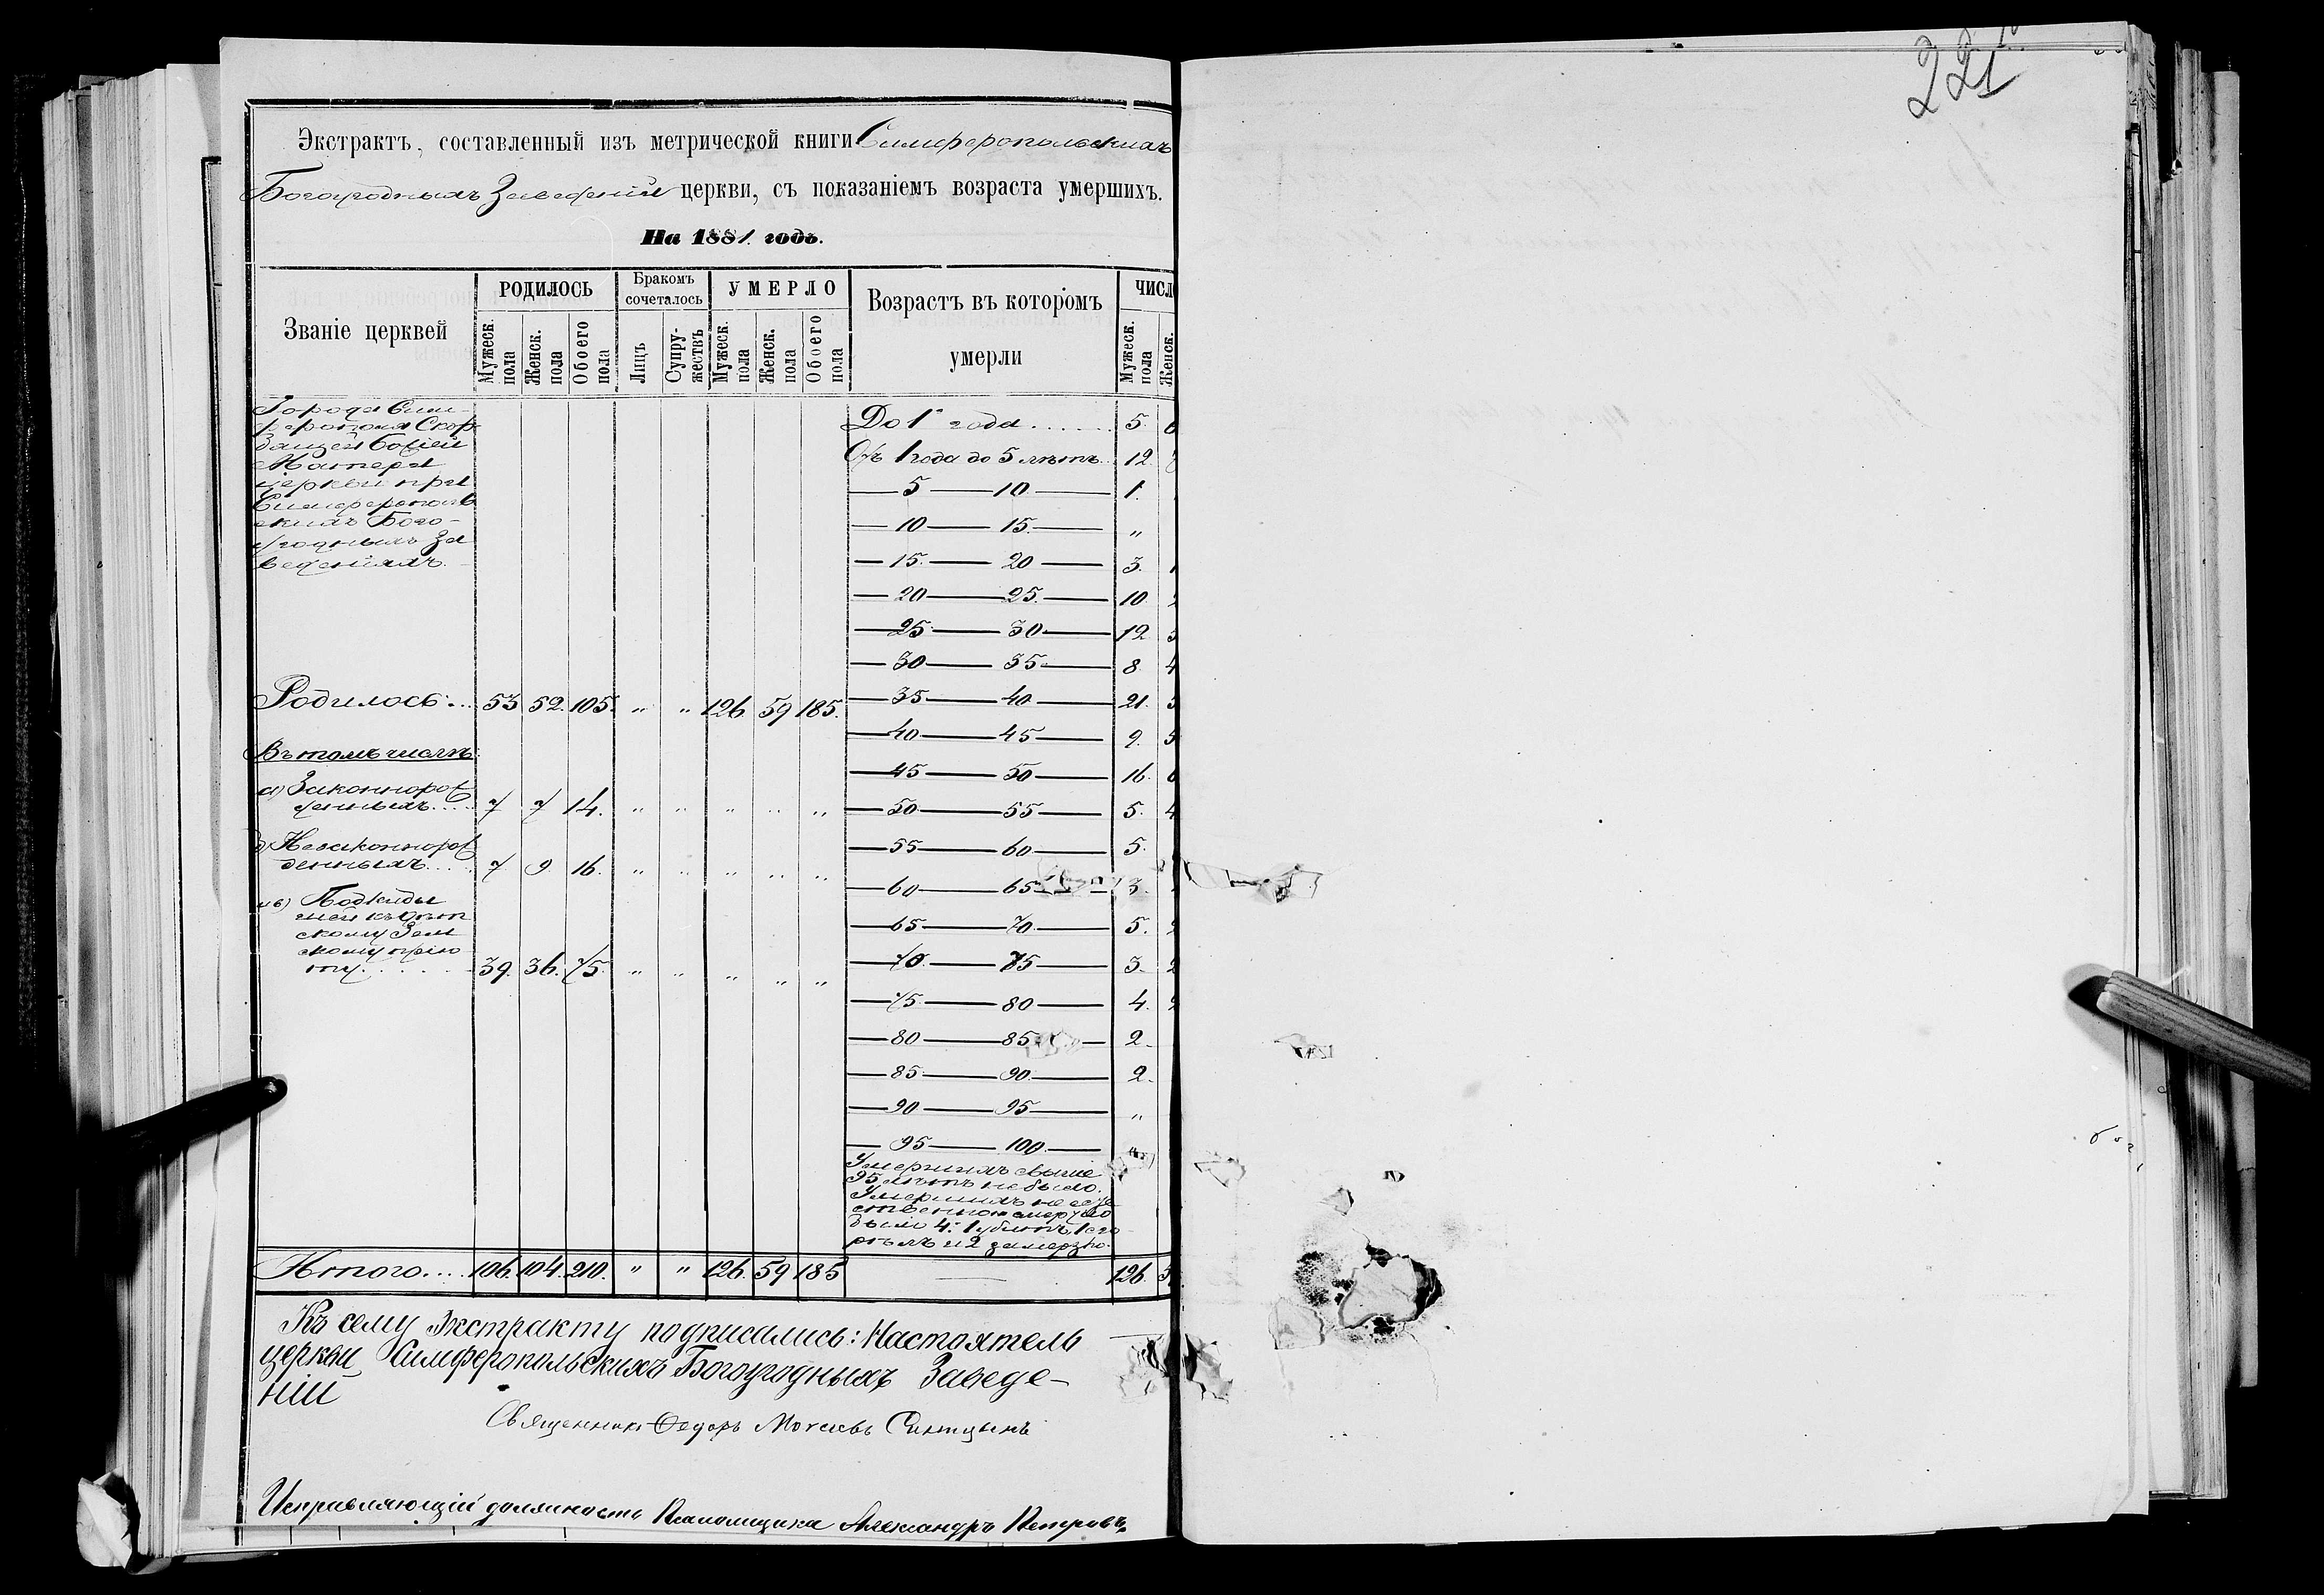 221
Экстрактъ, составленный изъ метрической книги Симферопольскихъ
Богоугодныхъ Заведеній церкви, съ показаніемъ возраста умершихъ.
На 1881 годъ.
Званіе церквей
РОДИЛОСЬ
Бракомъ сочеталось
УМЕРЛО
Возрастъ въ которомъ умерли
ЧИСЛ
Мужеск. пола
Женск. пола
Обоего пола
Лицъ
Супружествъ
Мужеск. пола
Женск. пола
Обоего пола
Мужеск. пола
Женск.
Города Сим-
ферополя Скор
бящей Божіей
Матери
церкви при
Симферополь
скихъ Бого-
угодныхъ За
веденіяхъ.
До 1 года . . . . . . 5.
Отъ 1 года до 5 лѣтъ. 12.
— 5 — 10 — 1.
— 10 — 15. — "
— 15. — 20 — 3.
— 20 — 25. — 10
— 25 — 30 — 12
— 30 — 35 — 8
Родилось... 53 52. 105. " " 126 59 185. — 35 — 40 — 21.
— 40 — 45 — 9.
Въ томъ числѣ:
— 45 — 50 — 16.
а) Законнорож
денныхъ.... 7 7 14. " " " " " — 50 — 55 — 5.
б) Незаконнорож
денныхъ.... 7 9. 16. " " " " " — 55 — 60 — 5.
— 60 — 65 — 3.
и в) Подкиды
шей къ дѣт
скому Зем
скому прію
ту. . . . . 39. 36. 75. " " " " "
— 65 — 70. — 5.
— 70. — 75 — 3.
— 75. — 80 — 4.
— 80 — 85 — 2.
— 85. — 90. — 2.
— 90 — 95 — "
— 95 — 100. — "
Умершихъ свыше
95 лѣтъ не было.
Умершихъ не есте
ственною смертью
было 4: 1 убитъ, 1 сго
рѣлъ и 2 замерзло.
Итого.... 106. 104. 210. " " 126. 59 185 — 126.
Къ сему экстракту подписались: Настоятель
церкви Симферопольскихъ Богоугодныхъ Заведе-
ній
Священникъ Ѳедоръ Синицынъ
Исправляющій должность Псаломщика Александръ Петровъ.